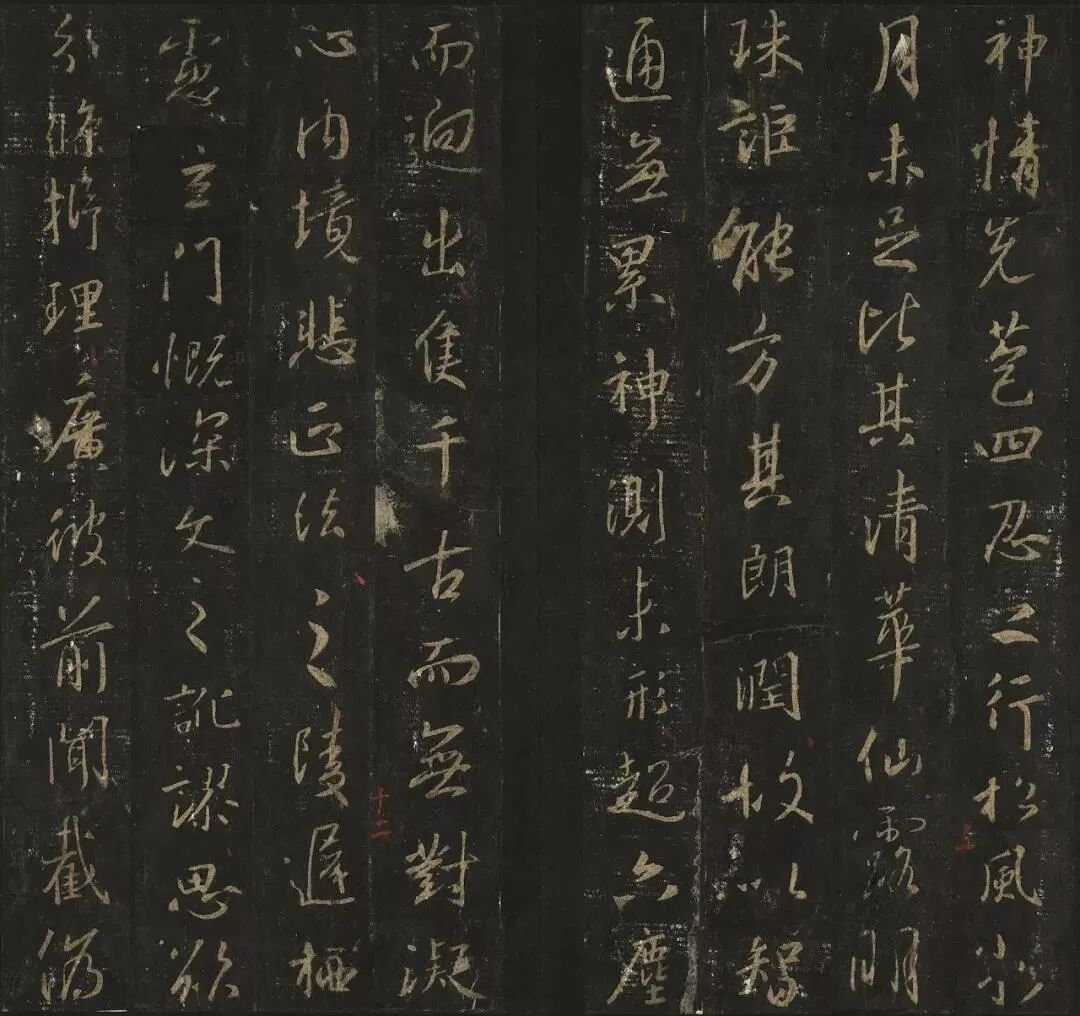 神情先苞四忍之行松風水
月未足比其清華仙露明
珠詎能方其朗潤故以智
通無累神測未形超六塵
而迥出隻千古而無對凝
心內境悲正法之陵遲栖
慮玄門慨深文之訛謬思欲
分條析理廣彼前聞截偽
上
十二